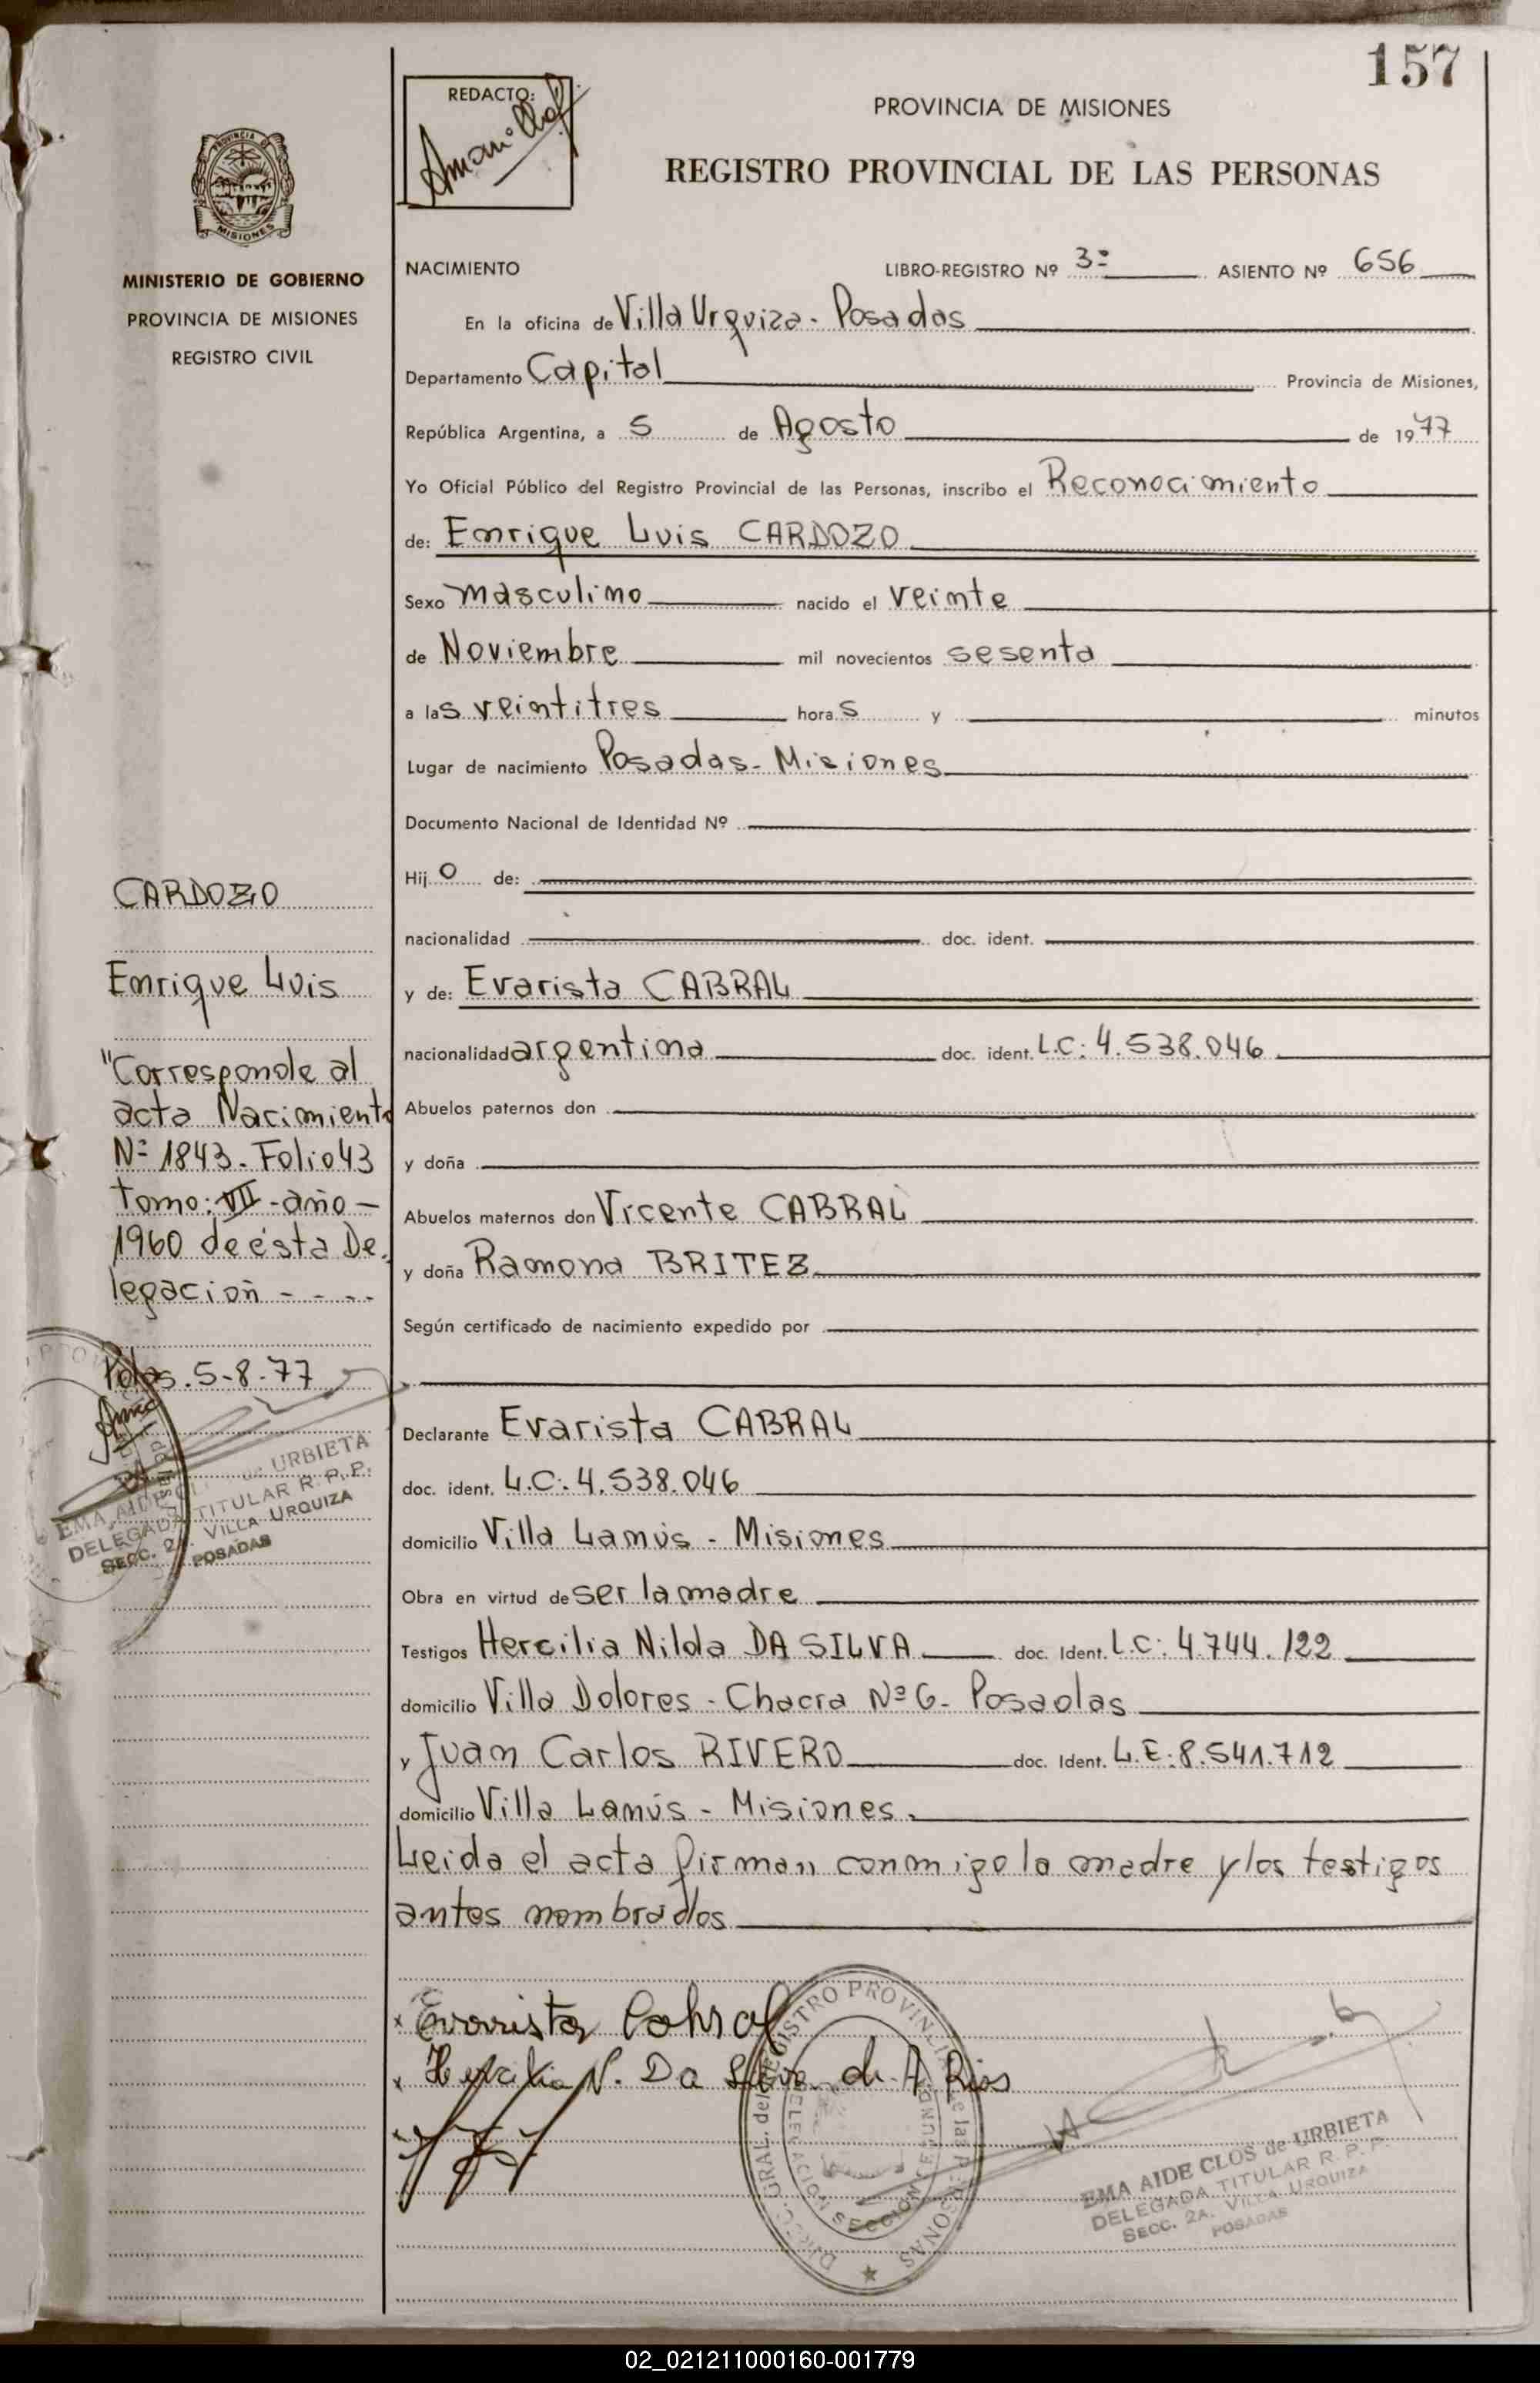 157
REDACTO:
PROVINCIA DE MISIONES
REGISTRO PROVINCIAL DE LAS PERSONAS
PROVINCIA DE
MISIONES
MINISTERIO DE GOBIERNO
PROVINCIA DE MISIONES
REGISTRO CIVIL
NACIMIENTO LIBRO-REGISTRO Nº 3º ASIENTO Nº 656
En la oficina de Villa Urquiza - Posadas
Departamento Capital Provincia de Misiones,
República Argentina, a 5 de Agosto de 1977
Yo Oficial Público del Registro Provincial de las Personas, inscribo el Reconocimiento
de: Enrique Luis CARDOZO
Sexo masculino nacido el veinte
de Noviembre mil novecientos sesenta
a las veintitres horas y minutos
Lugar de nacimiento Posadas - Misiones
Documento Nacional de Identidad Nº
Hijo de:
nacionalidad doc. ident.
y de: Evarista CABRAL
nacionalidad argentina doc. ident. L.C: 4.538.046
Abuelos paternos don
y doña
Abuelos maternos don Vicente CABRAL
y doña Ramona BRITEZ
Según certificado de nacimiento expedido por
Declarante Evarista CABRAL
doc. ident. L.C: 4.538.046
domicilio Villa Lanús - Misiones
Obra en virtud de ser la madre
Testigos Hercilia Nilda DA SILVA doc. Ident. L.C: 4.744.122
domicilio Villa Dolores - Chacra Nº 6 - Posadas
y Juan Carlos RIVERO doc. Ident. L.E: 8.541.712
domicilio Villa Lanús - Misiones.
Leida el acta firman conmigo la madre y los testigos
antes nombrados
CARDOZO
Enrique Luis
"Corresponde al
acta Nacimiento
Nº 1843. Folio 43
tomo: VII - año -
1960 de ésta De.
legación - - - -
Pdas. 5-8-77
EMA AIDE CLOS de URBIETA
DELEGADA TITULAR R. P. P.
SECC. 2A. VILLA URQUIZA
POSADAS
x Evarista Cabral
x Hercilia N. Da Silva de A Rios
DIREC. GRAL. del REGISTRO PROVINCIAL de las PERSONAS
DELEGACION SECCION SEGUNDA
EMA AIDE CLOS de URBIETA
DELEGADA TITULAR R. P. P.
SECC. 2A. VILLA URQUIZA
POSADAS
02_021211000160-001779